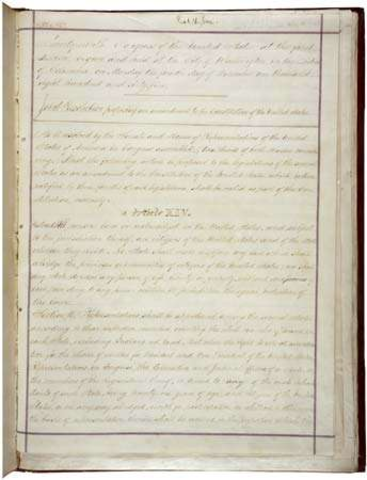 Congress of the United States, at the first
session, begun and held at the City of Washington, in
of Columbia, on Monday the fourth day of December, one thousand
eight hundred and sixty-five
Joint Resolution proposing an amendment to the Constitution of the United States.
Be it resolved by the Senate and House of Representatives of the United
States of America in Congress assembled, (two thirds of both Houses concur-
ring,) That the following article be proposed to the legislatures of the several
States as an amendment to the Constitution of the United States, which, when
ratified by three fourths of said legislatures, shall be valid as part of the Con-
stitution, namely:
Article XIV.
persons born or naturalized in the United States, and subject
to the jurisdiction thereof, are citizens of the United States and of the State
wherein they reside. No State shall make or enforce any law which shall
abridge the privileges or immunities of citizens of the United States; nor shall
any State deprive any person of life, liberty, or property, without due process of
law; nor deny to any person within its jurisdiction the equal protection of
the laws.
Section 2. Representatives shall be apportioned among the several States
according to their respective numbers, counting the whole number of persons in
each State, excluding Indians not taxed. But when the right to vote at any elec-
tion for the choice of electors for President and Vice President of the United States,
Representatives in Congress, the Executive and Judicial officers of a State, or
the members of the Legislature thereof, is denied to any of the male inhab-
itants of such State, being twenty-one years of age, and citizens of the United
States, or in any way abridged, except for participation in rebellion, or other crime,
the basis of representation therein shall be reduced in the proportion which the